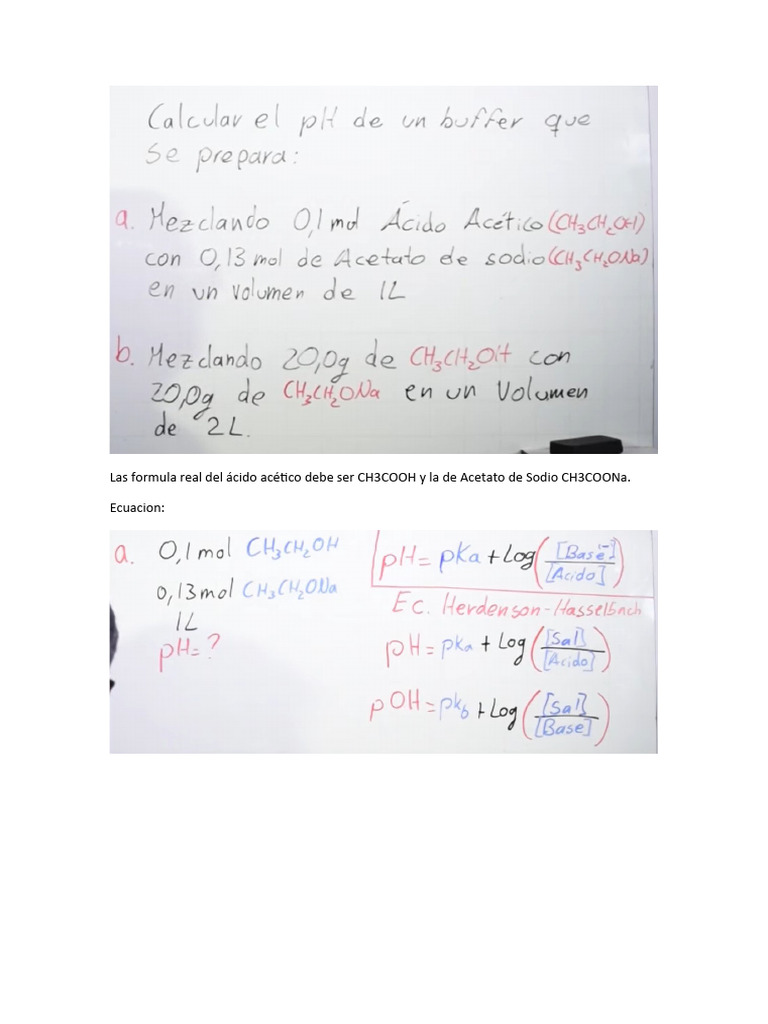 Calcular el pH de un buffer que
se prepara:
a. Mezclando 0,1 mol Ácido Acético (CH₃CH₂OH)
con 0,13 mol de Acetato de sodio (CH₃CH₂ONa)
en un volumen de 1L
b. Mezclando 20,0g de CH₃CH₂OH con
20,0g de CH₃CH₂ONa en un Volumen
de 2L.
Las formula real del ácido acético debe ser CH3COOH y la de Acetato de Sodio CH3COONa.
Ecuacion:
a. 0,1 mol CH₃CH₂OH
0,13 mol CH₃CH₂ONa
1L
pH=?
pH = pKa + Log([Base⁻]/[Acido])
Ec. Herdenson-Hasselbach
pH = pKa + Log([Sal]/[Acido])
pOH = pKb + Log([Sal]/[Base])